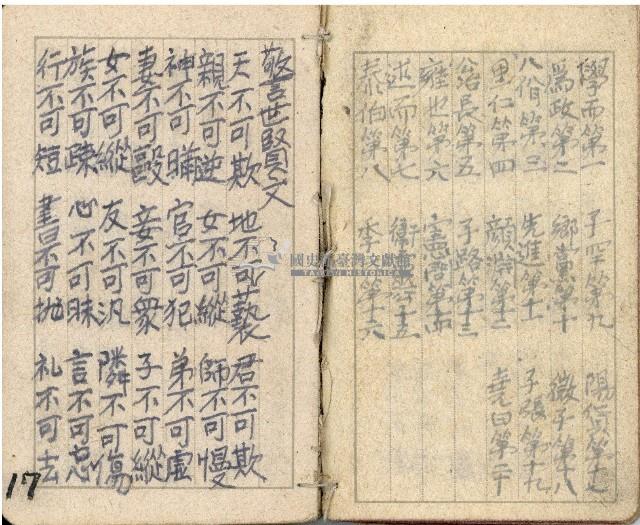 學而第一 子罕第九 陽貨第十七
爲政第二 鄉黨第十 微子第十八
八佾第三 先進第十一 子張第十九
里仁第四 顏淵第十二 堯曰第二十
公冶長第五 子路第十三
雍也第六 憲問第十四
述而第七 衛靈公十五
泰伯第八 季氏第十六
警世賢文
天不可欺 地不可褻 君不可欺
親不可逆 女不可縱 師不可慢
神不可瞞 官不可犯 弟不可虛
妻不可毆 妾不可衆 子不可縱
女不可縱 友不可汎 隣不可傷
族不可疎 心不可昧 言不可忘
行不可短 書不可抛 礼不可去
17
國史館臺灣文獻館
TAIWAN HISTORICA